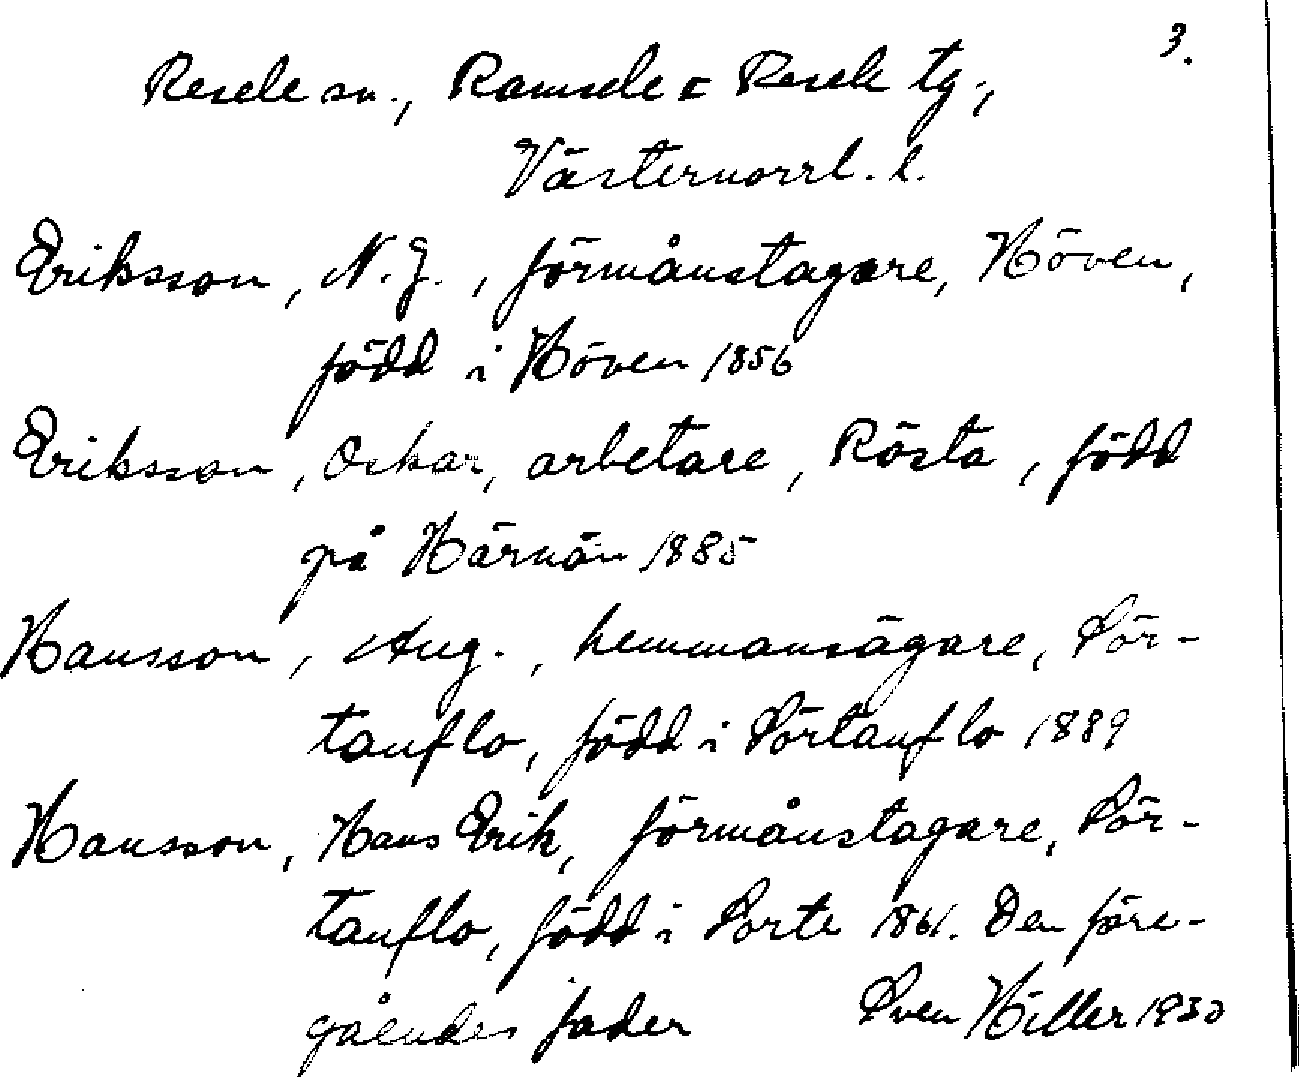 3.
Resele sn., Ramsele o Resele tg.,
Västernorrl. l.
Eriksson, N. J., förmånstagare, Höven,
född i Höven 1856
Eriksson, Oskar, arbetare, Rösta, född
på Härnön 1885
Hansson, Aug., hemmansägare, Sör-
tanflo, född i Sörtanflo 1889
Hansson, Hans Erik, förmånstagare, Sör-
tanflo, född i Sorte 1861. Den före-
gåendes fader Sven Hiller 1930